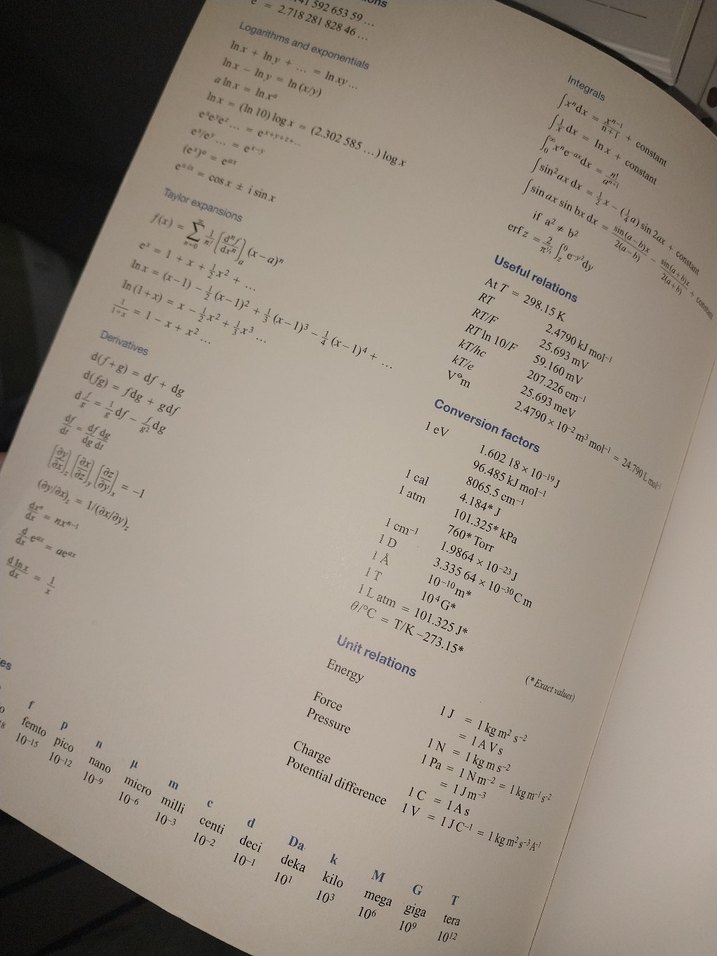 ons
141 592 653 59 ...
e = 2.718 281 828 46 ...
Logarithms and exponentials
ln x + ln y + ... = ln xy...
ln x − ln y = ln (x/y)
a ln x = ln xᵃ
ln x = (ln 10) log x = (2.302 585 ...) log x
eˣeʸeᶻ ... = eˣ⁺ʸ⁺ᶻ⁺...
eˣ/eʸ ... = eˣ⁻ʸ
(eˣ)ᵃ = eᵃˣ
e±ⁱˣ = cos x ± i sin x
Taylor expansions
f(x) = ∑ₙ₌₀^∞ 1/n! [dⁿf/dxⁿ]ₐ (x−a)ⁿ
eˣ = 1 + x + ½x² + ...
ln x = (x−1) − ½ (x−1)² + ⅓ (x−1)³ − ¼ (x−1)⁴ + ...
ln (1+x) = x − ½x² + ⅓x³ ...
1/1+x = 1 − x + x² ...
Derivatives
d(f+g) = df + dg
d(fg) = fdg + gdf
d f/g = 1/g df − f/g² dg
df/dt = df/dg dg/dt
[∂y/∂x]z [∂x/∂z]y [∂z/∂y]x = −1
(∂y/∂x)z = 1/(∂x/∂y)z
dxⁿ/dx = nxⁿ⁻¹
d/dx eᵃˣ = aeᵃˣ
d ln x/dx = 1/x
Integrals
∫xⁿdx = xⁿ⁻¹/n+1 + constant
∫1/x dx = ln x + constant
∫₀^∞ xⁿe⁻ᵃˣdx = n!/aⁿ⁺¹
∫sin²ax dx = ½x − (¼a) sin 2ax + constant
∫sin ax sin bx dx = sin(a−b)x/2(a−b) − sin(a+b)x/2(a+b) + constant
if a² ≠ b²
Useful relations
At T = 298.15 K
RT 2.4790 kJ mol⁻¹
RT/F 25.693 mV
RT ln 10/F 59.160 mV
kT/hc 207.226 cm⁻¹
kT/e 25.693 meV
V°m 2.4790 × 10⁻² m³ mol⁻¹ = 24.790 L mol⁻¹
Conversion factors
1 eV 1.602 18 × 10⁻¹⁹ J
96.485 kJ mol⁻¹
8065.5 cm⁻¹
1 cal 4.184* J
1 atm 101.325* kPa
760* Torr
1 cm⁻¹ 1.9864 × 10⁻²³ J
1 D 3.335 64 × 10⁻³⁰ C m
1 Å 10⁻¹⁰ m*
1 T 10⁴ G*
1 L atm = 101.325 J*
θ/°C = T/K −273.15*
(*Exact values)
Unit relations
Energy 1 J = 1 kg m² s⁻²
= 1 A V s
Force 1 N = 1 kg m s⁻²
Pressure 1 Pa = 1 N m⁻² = 1 kg m⁻¹ s⁻²
= 1 J m⁻³
Charge 1 C = 1 A s
Potential difference 1 V = 1 J C⁻¹ = 1 kg m² s⁻³ A⁻¹
es
f p n μ m c d Da k M G T
femto pico nano micro milli centi deci deka kilo mega giga tera
10⁻¹⁵ 10⁻¹² 10⁻⁹ 10⁻⁶ 10⁻³ 10⁻² 10⁻¹ 10¹ 10³ 10⁶ 10⁹ 10¹²